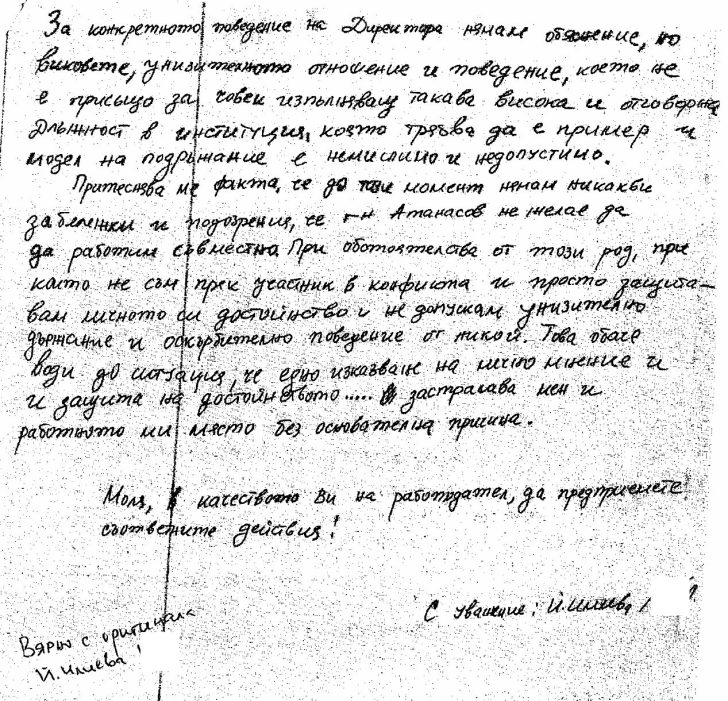 За конкретното поведение на Директора нямам обяснение, но
виковете, унизителното отношение и поведение, което не
е присъщо за човек изпълняващ такава висока и отговорна
длъжност в институция, която трябва да е пример и
модел на подръжание е немислимо и недопустимо.
Притеснява ме факта, че до този момент нямам никакви
забележки и подозрения, че г-н Атанасов не желае да
да работим съвместно. При обстоятелства от този род, при
които не съм пряк участник в конфликта и просто защита-
вам личното си достойнство и не допускам унизително
държание и оскърбително поведение от никой. Това обаче
води до ситуация, че едно изказване на лично мнение и
и защита на достойнството..... застрашава мен и
работното ми място без основателна причина.
Моля, в качеството Ви на работодател, да предприемете
съответните действия!
С уважение: Й.Илиева /
Вярно с оригинала
Й.Илиева!